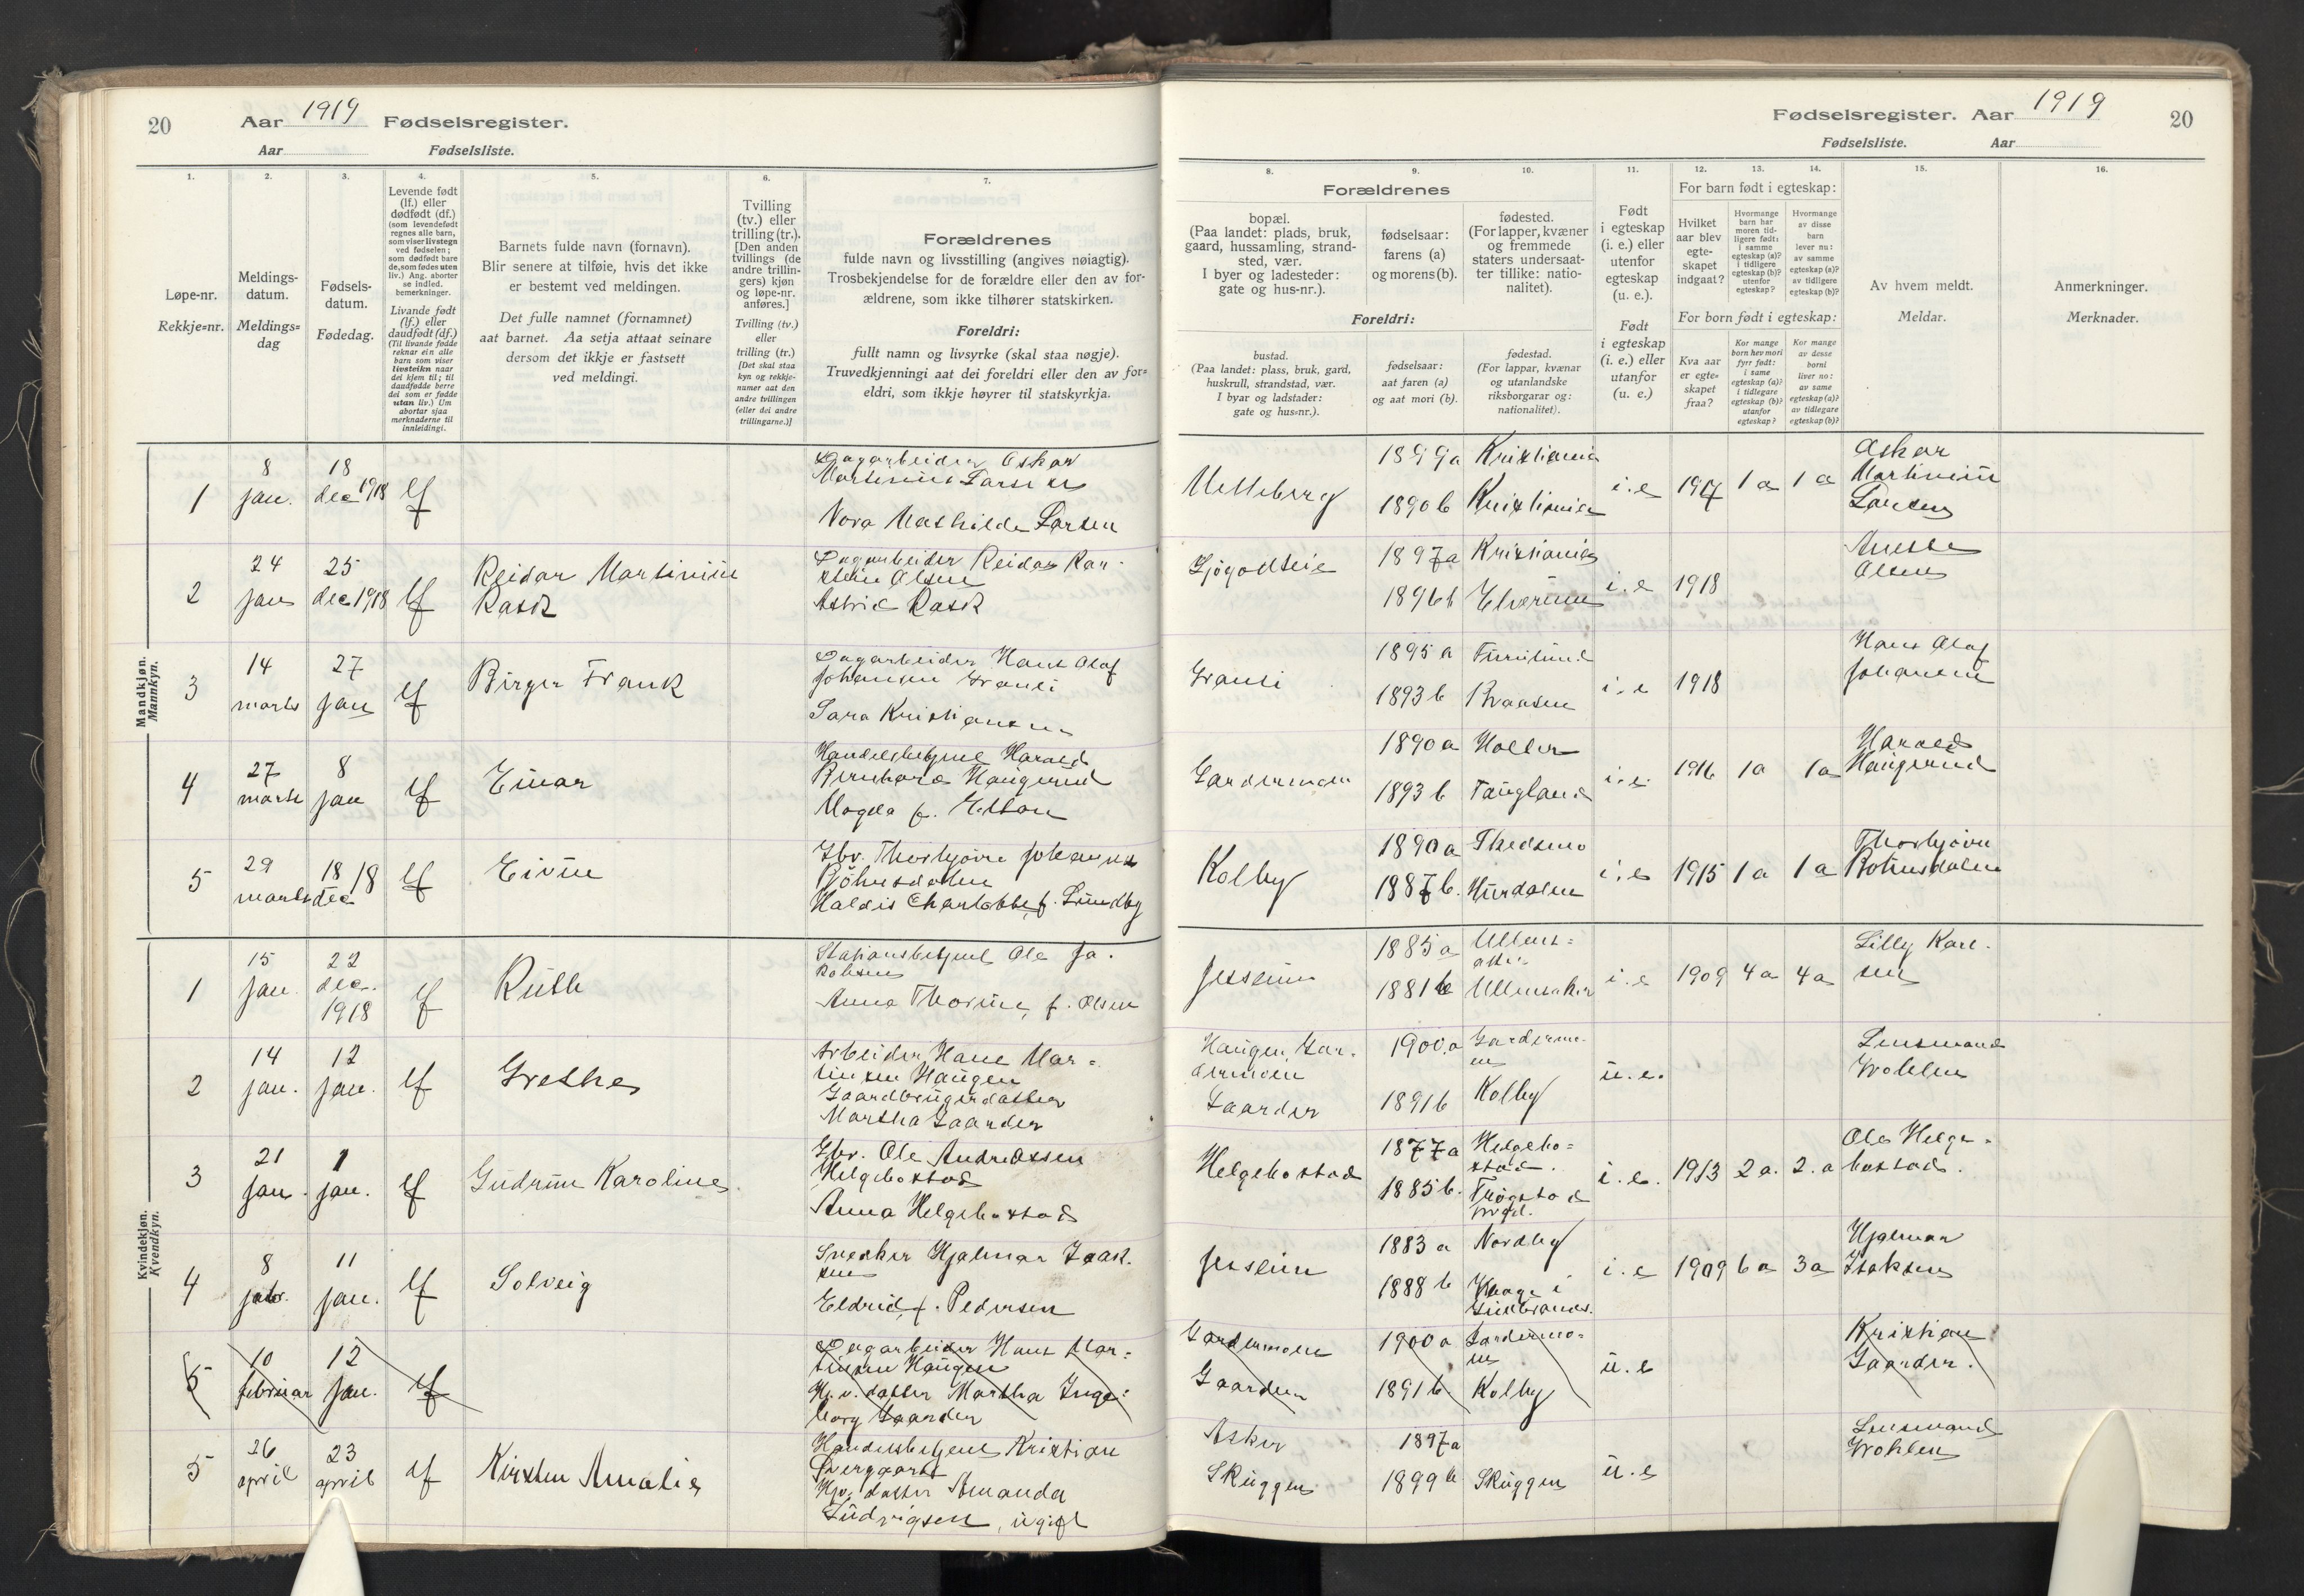 20
Aar 1919 Fødselsregister.
Aar Fødselsliste.
1.
2.
3.
4.
5.
6.
7.
Løpe-nr.
Rekkje-nr.
Meldings-
datum.
Meldings-
dag
Fødsels-
datum.
Fødedag.
Levende født
(lf.) eller
dødfødt (df.)
(som levendefødt
regnes alle barn,
som viser livstegn
ved fødselen;
som dødfødt bare
de, som fødes uten
liv.) Ang. aborter
se indled.
bemerkninger.
Livande født
(lf.) eller
daudfødt (df.)
(Til livande fødde
reknar ein alle
barn som viser
livsteikn naar
dei kjem til; til
daudfødde berre
dei som er fødde
utan liv.) Um
abortar sjaa
merknaderne til
innleidingi.
Barnets fulde navn (fornavn).
Blir senere at tilføie, hvis det ikke
er bestemt ved meldingen.
Det fulle namnet (fornamnet)
aat barnet. Aa setja attaat seinare
dersom det ikkje er fastsett
ved meldingi.
Tvilling
(tv.) eller
trilling (tr.).
[Den anden
tvillings (de
andre trillin-
gers) kjøn
og løpe-nr.
anføres.]
Tvilling (tv.)
eller
trilling (tr.)
[Det skal staa
kyn og rekkje-
numer aat den
andre tvillingen
(eller dei andre
trillingarne.)]
Forældrenes
fulde navn og livsstilling (angives nøiagtig).
Trosbekjendelse for de forældre eller den av for-
ældrene, som ikke tilhører statskirken.
Foreldri:
fullt namn og livsyrke (skal staa nøgje).
Truvedkjenningi aat dei foreldri eller den av for-
eldri, som ikkje høyrer til statskyrkja.
Mandkjøn.
Mannkyn.
1
8
jan.
18
dec 1918
lf
Dagarbeider Oskar
Martinius Larsen
Nora Mathilde Larsen
2
24
jan
25
dec 1918
lf
Reidar Martinius
Rask
Dagarbeider Reidar Kar-
stein Olsen
Astrid Rask
3
14
marts
27
jan
lf
Birger Frank
Dagarbeider Hans Olaf
Johansen
Sara Kristiansen
4
27
marts
8
jan
lf
Einar
Handelsbetjent Harald
Bernhard Haugerud
Magda f.
5
29
marts
18 18
dec
lf
Eivin
Gbr. Thorbjørn
Haldis Charlotte f. Lundby
Kvindekjøn.
Kvendkyn.
1
15
jan.
22
dec.
1918
lf
Ruth
Stasjonsbetjent Ole Ja-
kobsen
Anna Thorine, f. Olsen
2
14
jan.
12
jan.
lf
Grethe
Arbeider Hans Mar-
tinsen Haugen
Gaardbrugerdatter
Martha Gaarder
3
21
jan.
1
jan.
lf
Gudrun Karoline
Gbr. Ole Andreassen
Helgebostad
Anna Helgebostad
4
8
febr.
11
jan.
lf
Solveig
Snedker Hjalmar Isak-
sen
Eldrid, f. Pedersen
5
10
februar
12
jan.
lf
Dagarbeider Hans Mar-
tinsen Haugen
datter Martha Inge-
borg Gaarder
5
26
april
23
april
lf
Kirsten Amalie
Handelsbetjent Kristian
datter Amanda
Ludvigsen, ugift
Fødselsregister. Aar 1919
20
Fødselsliste. Aar
8.
9.
10.
11.
12.
13.
14.
15.
16.
Forældrenes
bopæl.
(Paa landet: plads, bruk,
gaard, hussamling, strand-
sted, vær.
I byer og ladesteder:
gate og hus-nr.).
fødselsaar:
farens (a)
og morens (b).
fødested.
(For lapper, kvæner
og fremmede
staters undersaat-
ter tillike: natio-
nalitet).
Foreldri:
bustad.
(Paa landet: plass, bruk, gard,
huskrull, strandstad, vær.
I byar og ladstader:
gate og hus-nr.).
fødselsaar:
aat faren (a)
og aat mori (b).
fødestad.
(For lappar, kvænar
og utanlandske
riksborgarar og:
nationalitet).
Født
i egteskap
(i. e.) eller
utenfor
egteskap
(u. e.).
Født
i egteskap
(i. e.) eller
utanfor
(u. e.)
For barn født i egteskap:
Hvilket
aar blev
egte-
skapet
indgaat?
Hvormange
barn har
moren tid-
ligere født:
i samme
egteskap (a)?
i tidligere
egteskap (b)?
utenfor
egteskap?
Hvormange
av disse
barn
lever nu:
av samme
egteskap (a)?
av tidligere
egteskap (b)?
For born født i egteskap:
Kva aar
er egte-
skapet
fraa?
Kor mange
born hev mori
fyrr født:
i same
egteskap (a)?
i tidlegare
egteskap (b)?
utanfor
egteskap?
Kor mange
av desse
borni
liver no:
av same
egteskap (a)?
av tidlegare
egteskap (b)?
Av hvem meldt.
Meldar.
Anmerkninger.
Merknader.
1899 a Kristiania
1890 b Kristiania
i. e 1917 1 a 1 a
Oskar
Martinius
Larsen
1897 a Kristiania
1896 b Elverum
i. e 1918
Anette
Olsen
1895 a
1893 b Braasen
i. e 1918
Hans Olaf
Johansen
Gardermoen
1890 a Holter
1893 b
i. e. 1916 1a 1a
Harald
Haugerud
Kolby
1890 a Skedsmo
1887 b. Hurdalen
i. e 1915 1 a 1 a
Thorbjørn
Jessheim
1885 a Ullens-
aker
1881 b Ullensaker
i. e 1909 4 a 4 a
Lilly Karl-
sen
Haugen, Gar-
dermoen
Gaarder
1900 a Gardermo-
en
1891 b Kolby
u. e.
Lensmand
Wohlen
Helgebostad
1877 a Helgebo-
stad.
1885 b. Trøgstad
i. e. 1913 2 a. 2. a
Ole Helge-
bostad.
Jessheim
1883 a Nordby
1888 b Vaage i
Gudbrands.
i. e 1909 6 a 3 a
Hjalmar
Isaksen
Gardermoen
Gaarder
1900 a Gardermo-
en
1891 b. Kolby
u. e
Kristian
Gaarder.
Asker
Skuggen
1897 a
1899 b Skuggen
u. e
Lensmand
Wohlen